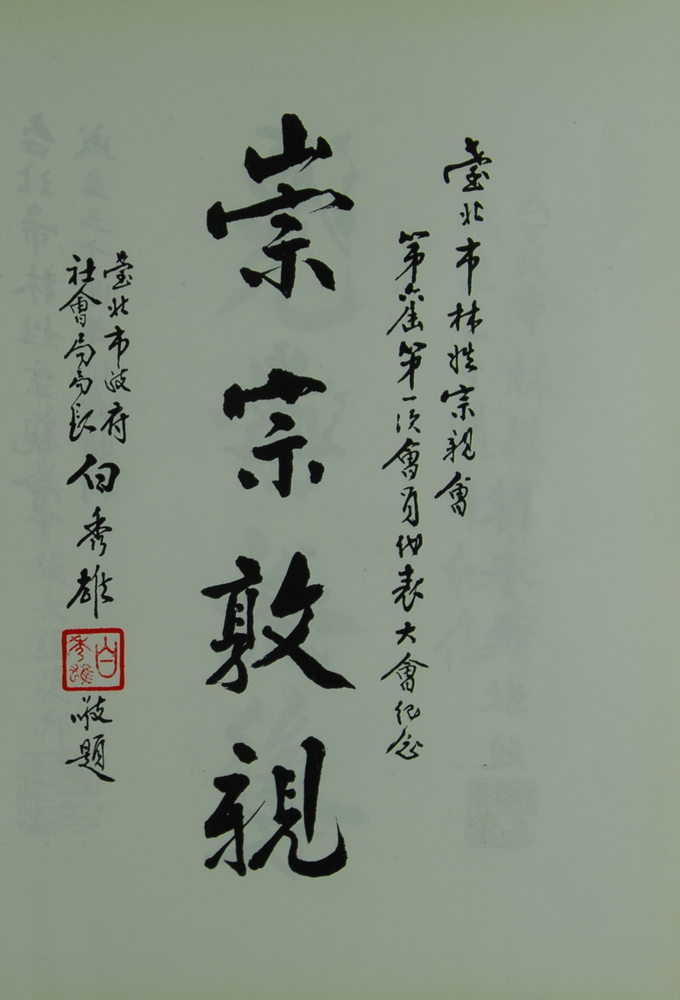 臺北市林姓宗親會
第六屆第一次會員代表大會紀念
崇宗敦親
臺北市政府
社會局局長 白秀雄 敬題
白秀雄